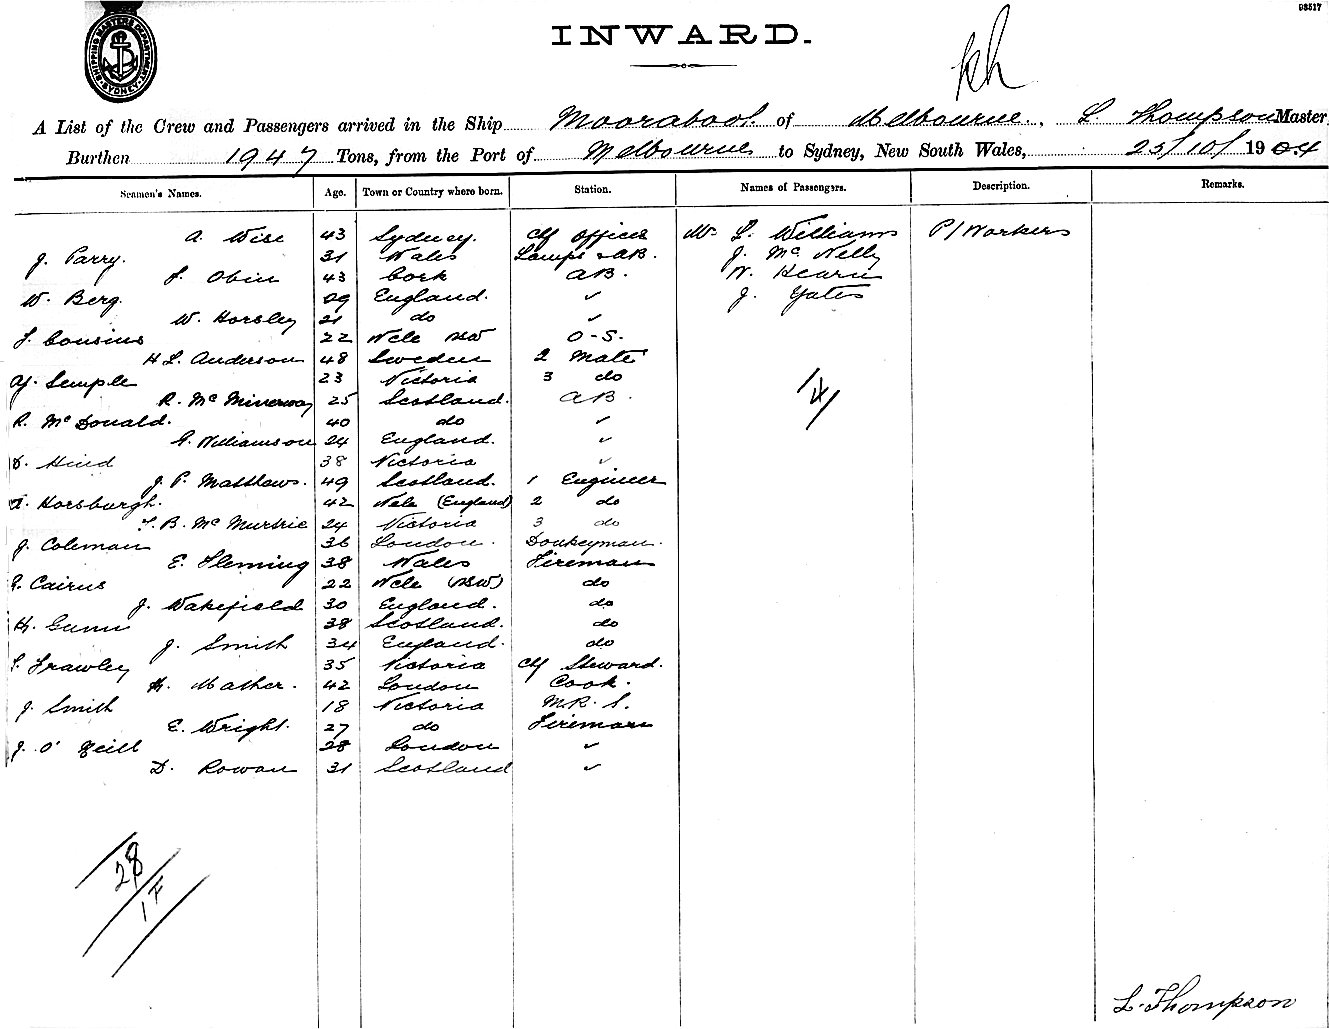 98517
SHIPPING MASTERS DEPARTMENT SYDNEY
INWARD.
A List of the Crew and Passengers arrived in the Ship Moorabool of Melbourne, L Thompson Master
Burthen 1947 Tons, from the Port of Melbourne to Sydney, New South Wales, 25/10/ 1904
Seamen's Names. Age. Town or Country where born. Station. Names of Passengers. Description. Remarks.
A. Wise 43 Sydney. Chf Officer Mr L. Williams P/Workers
J. Parry. 31 Wales Lamps & AB. J. McNelly
Obin 43 Cork AB. W. Hearn
W. Berg. 29 England. ✓ J. Yates
W. Horsley 21 do ✓
Cousins 22 Ncle NSW O-S.
H L. Anderson 48 Sweden 2 Mate
Semple 23 Victoria 3 do
R. Mc 25 Scotland. AB.
R. McDonald. 40 do ✓
Williamson 24 England. ✓
D. Hind 38 Victoria ✓
J P. Matthews. 49 Scotland. 1 Engineer
Horsburgh. 42 Ncle (England) 2 do
B. McMurtrie 24 Victoria 3 do
J. Coleman 36 London. Donkeyman.
E. Fleming 38 Wales Fireman
Cairns 22 Ncle (NSW) do
J. Wakefield 30 England. do
Gunn 38 Scotland. do
J. Smith 34 England. do
Frawley 35 Victoria Chf Steward.
Mather. 42 London Cook.
J. Smith 18 Victoria M.R.S.
E. Wright. 27 do Fireman
J. O'Neill 28 London ✓
D. Rowan 31 Scotland ✓
4/
28
1F
L. Thompson